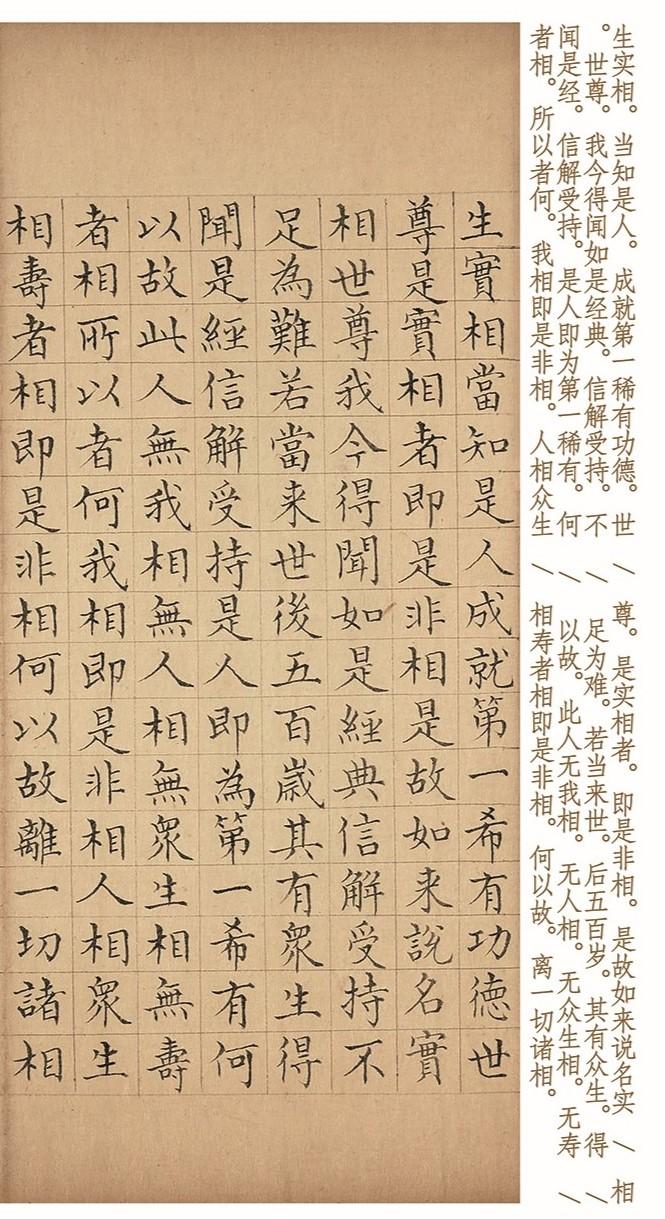 生实相。当知是人。成就第一稀有功德。世 / 尊。是实相者。即是非相。是故如来说名实 / 相
。世尊。我今得闻如是经典。信解受持。不 / 足为难。若当来世。后五百岁。其有众生。得 /
闻是经。信解受持。是人即为第一稀有。何 / 以故。此人无我相。无人相。无众生相。无寿 /
者相。所以者何。我相即是非相。人相众生 / 相寿者相即是非相。何以故。离一切诸相。
生實相當知是人成就第一希有功德世
尊是實相者即是非相是故如来說名實
相世尊我今得聞如是經典信解受持不
足為難若當来世後五百歲其有衆生得
聞是經信解受持是人即為第一希有何
以故此人無我相無人相無衆生相無壽
者相所以者何我相即是非相人相衆生
相壽者相即是非相何以故離一切諸相